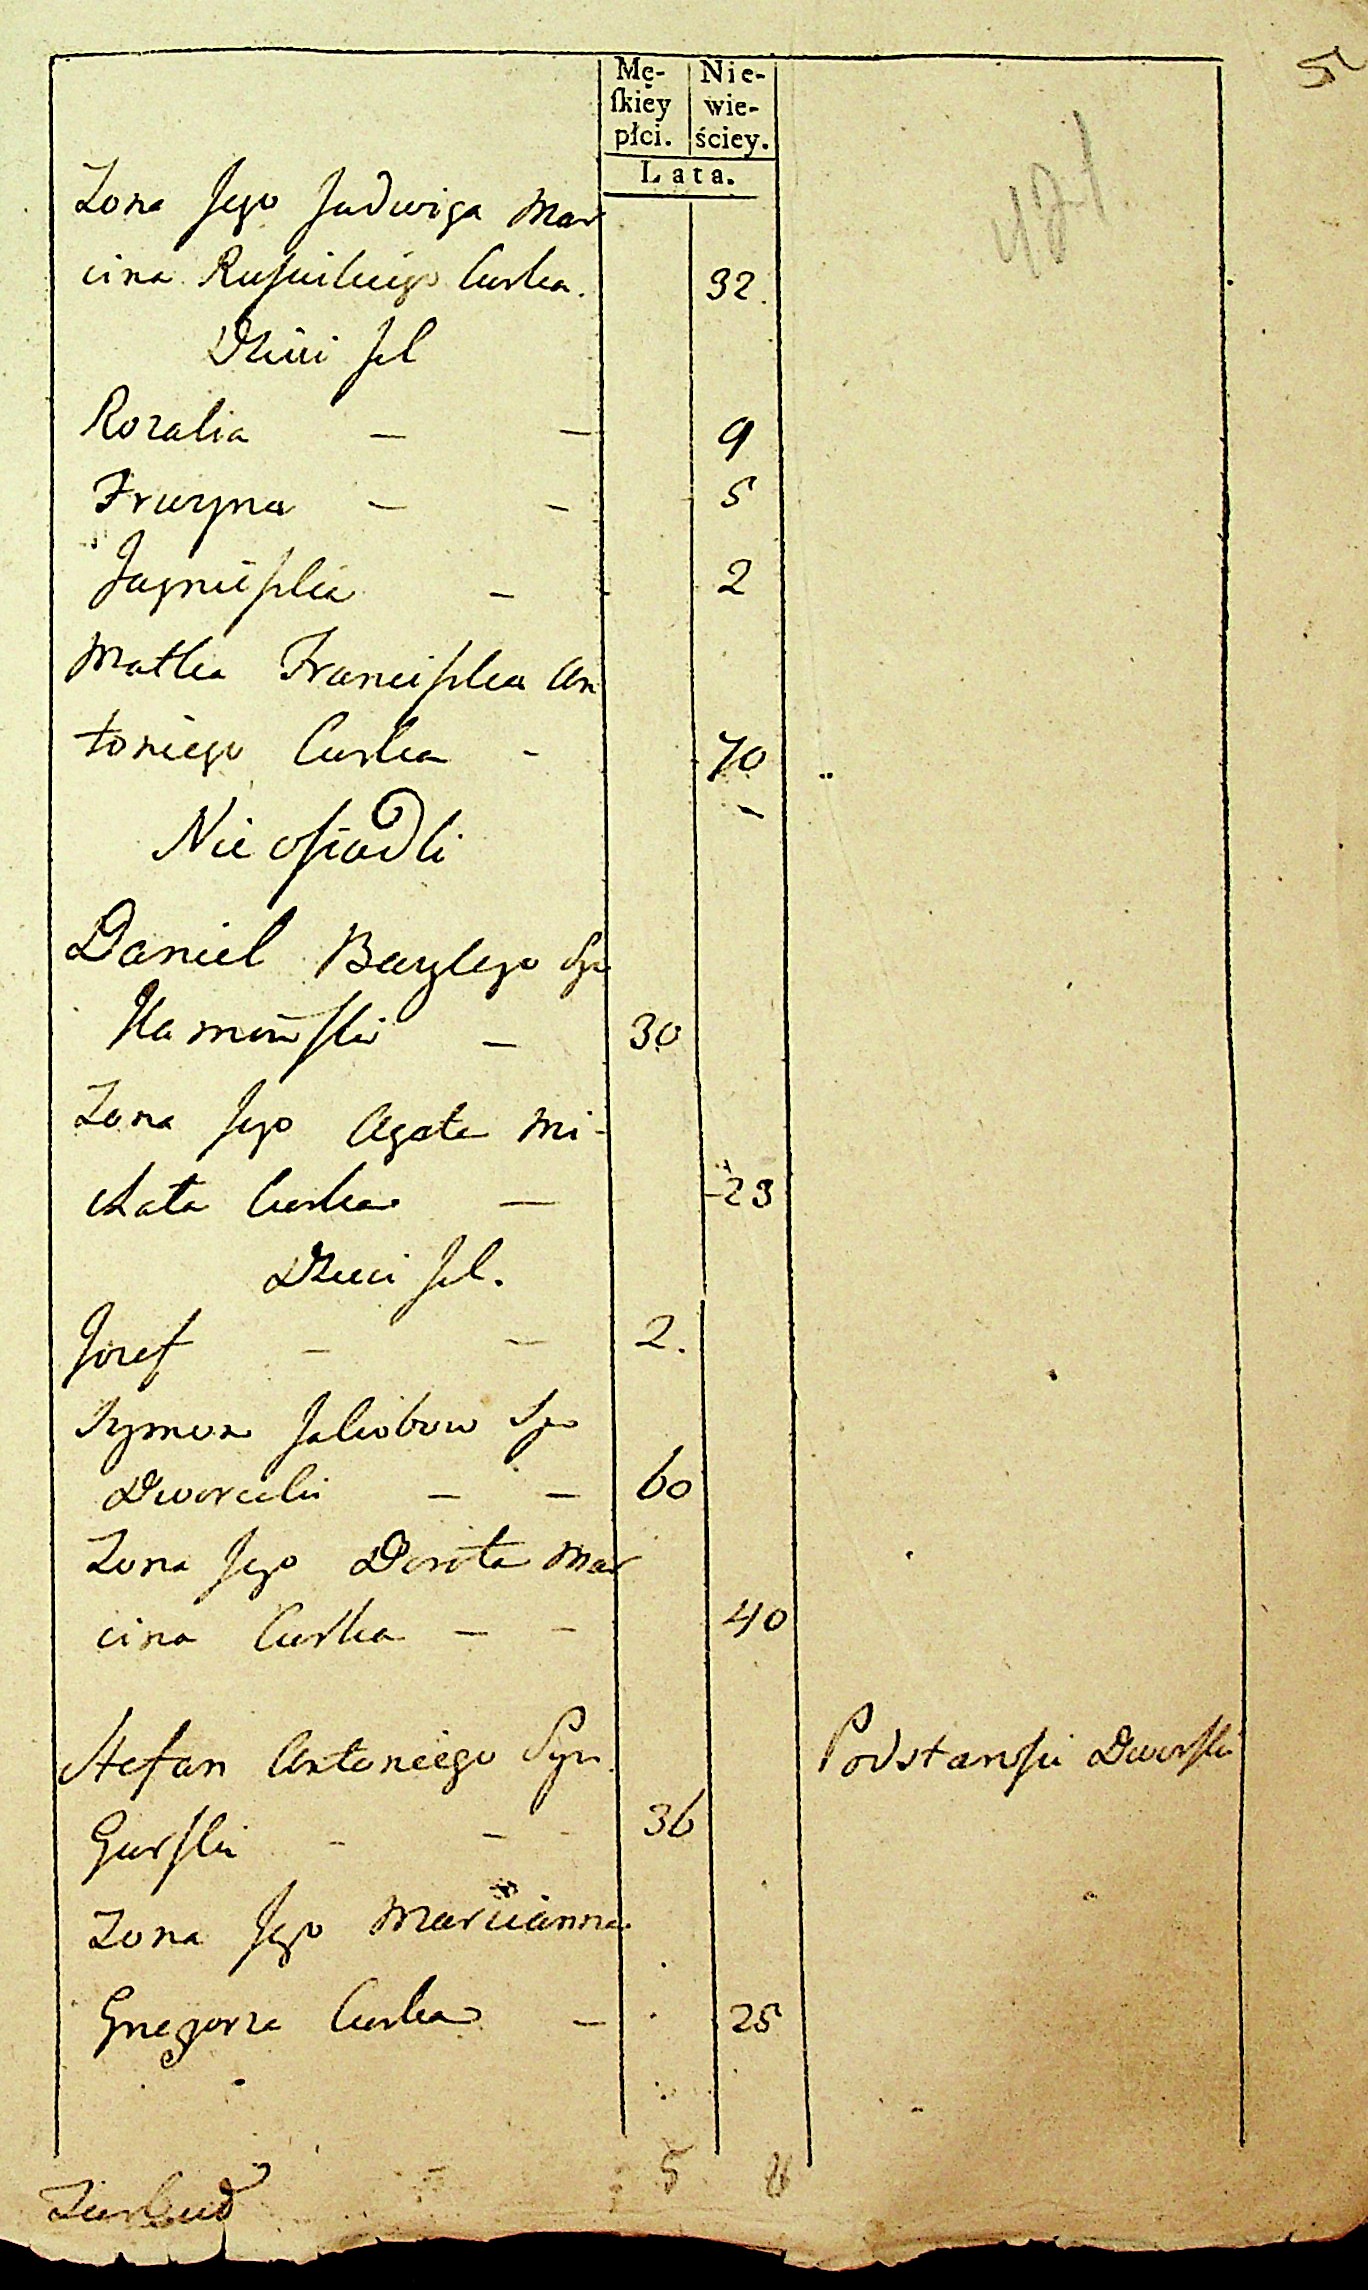 5
Mę-
skiéy
płci.
Nie-
wie-
ściey.
Lata.
421
Zona Jego Jadwiga Mar
cina Curka. 32.
Dzieci Ich
Rozalia — — 9
Fruzyna — — 5
Jagnieszka — 2
Matka Franciszka An
toniego Curka - 70
Nie osiadli
Daniel Bazylego Syn
Kamiński — 30
Zona Jego Agata Mi-
chała Curka — 23
Dzieci Ich.
Jozef — — 2.
Szymon Jakobow Syn
Dworecki — — 60
Zona Jego Dorota Mar
cina Curka — - 40
Stefan Antoniego Syn Podstarości Dworski
Gurski - — - 36
Zona Jego Marcianna
Gregorza Curka — 25
5